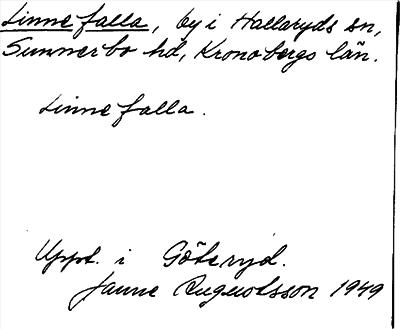 Linnefalla, by i Hallaryds sn,
Sunnerbo hd, Kronobergs län.
Linnefalla.
Uppt. i Göteryd.
Janne Augustsson 1949